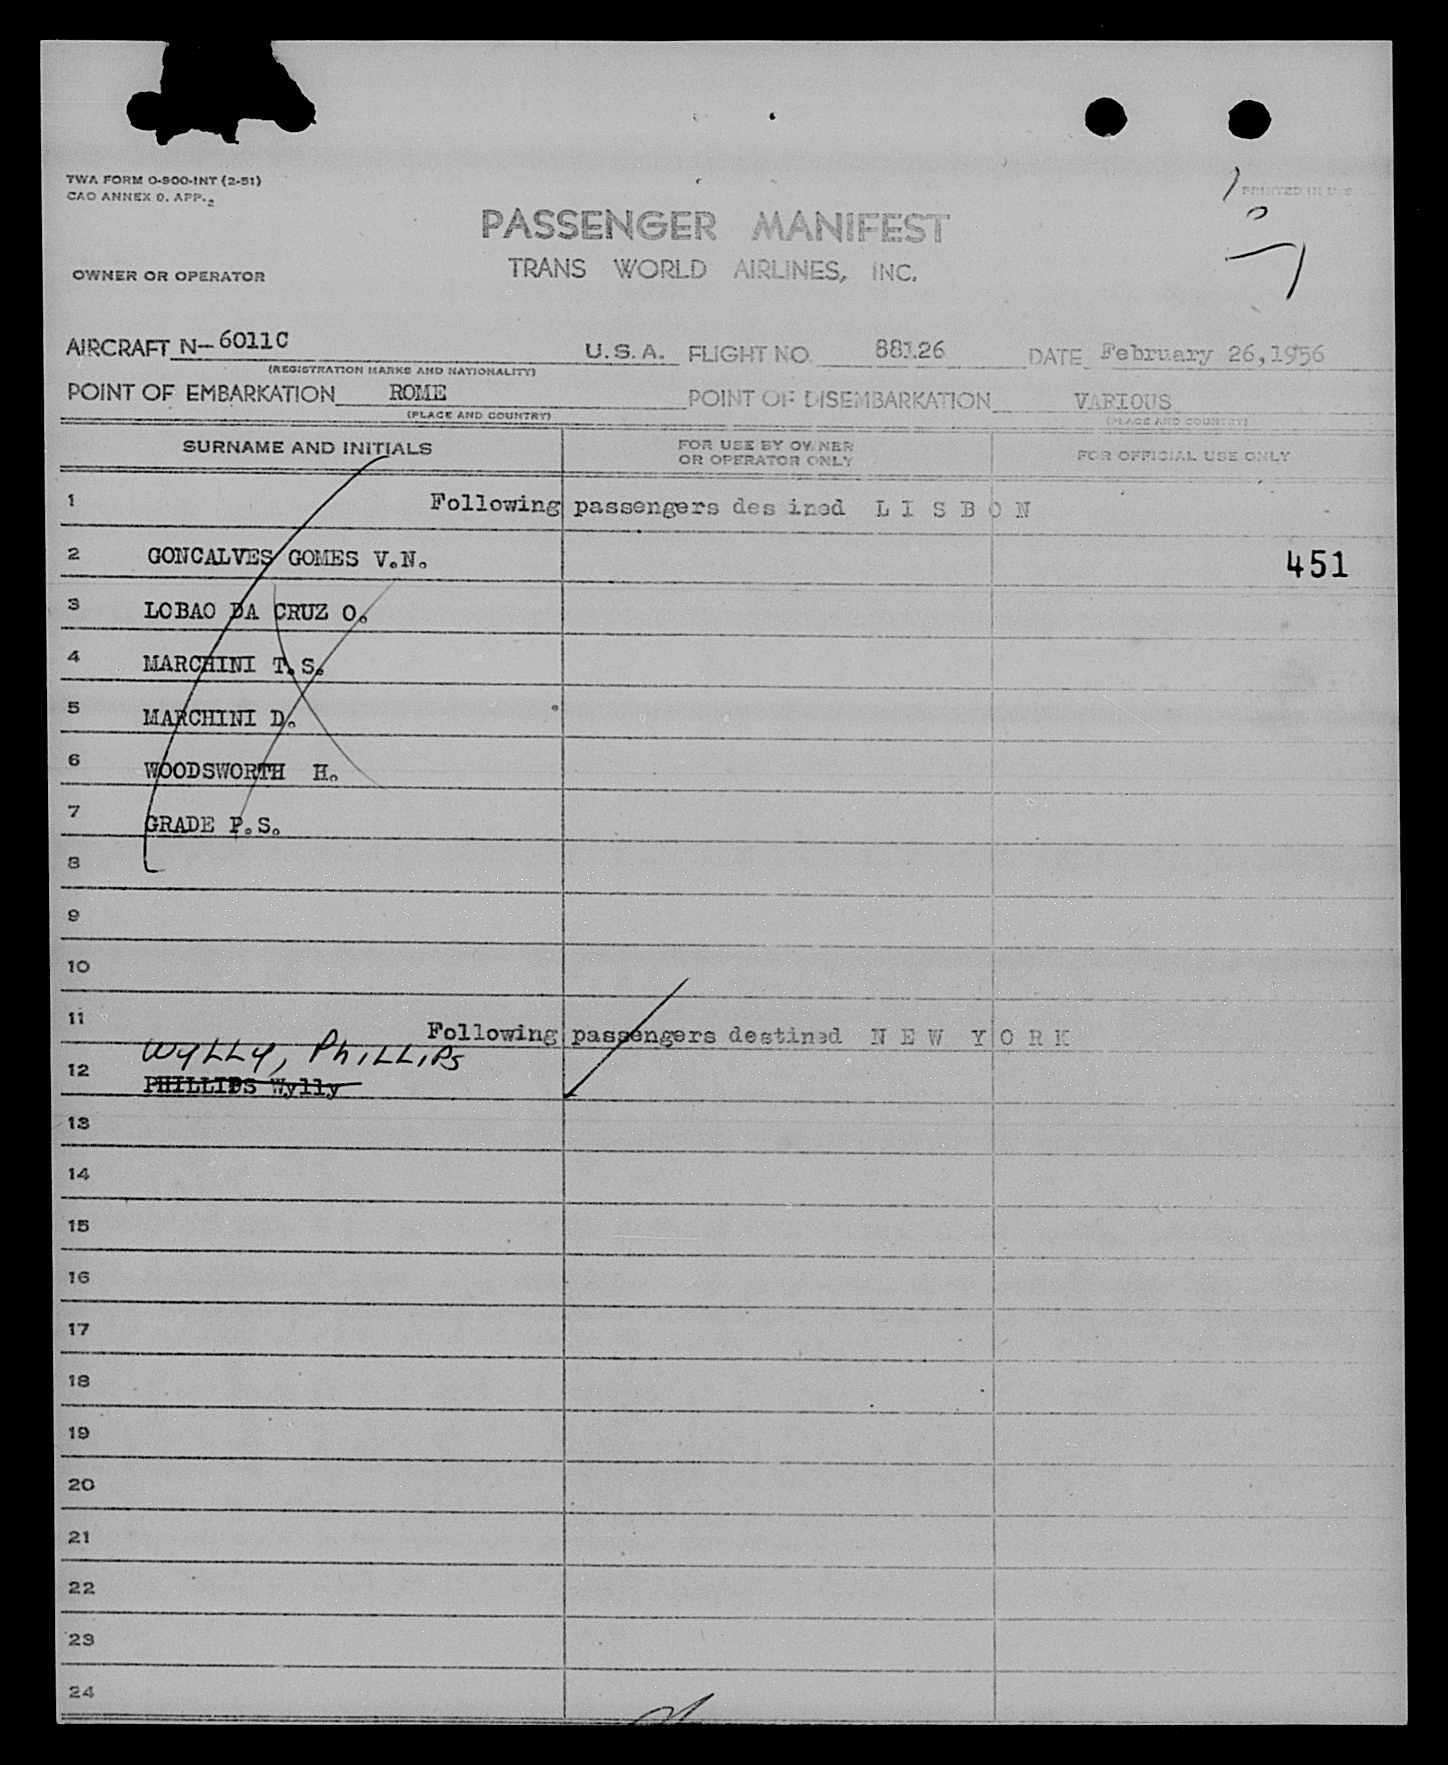 TWA FORM O-900-INT (2-51)
CAO ANNEX 9. APP. 2
PRINTED IN U.S.
PASSENGER MANIFEST
TRANS WORLD AIRLINES, INC.
OWNER OR OPERATOR
AIRCRAFT N-6011C U.S.A. FLIGHT NO. 88126 DATE February 26,1956
(REGISTRATION MARKS AND NATIONALITY)
POINT OF EMBARKATION ROME POINT OF DISEMBARKATION VARIOUS
(PLACE AND COUNTRY) (PLACE AND COUNTRY)
SURNAME AND INITIALS FOR USE BY OWNER OR OPERATOR ONLY FOR OFFICIAL USE ONLY
1 Following passengers des ined L I S B O N
2 GONCALVES GOMES V.N. 451
3 LOBAO DA CRUZ O.
4 MARCHINI T.S.
5 MARCHINI D.
6 WOODSWORTH H.
7 GRADE P.S.
8
9
10
11 Following passengers destined N E W Y O R K
WYLLY, PHILLIPS
12 PHILLIPS Wylly
13
14
15
16
17
18
19
20
21
22
23
24